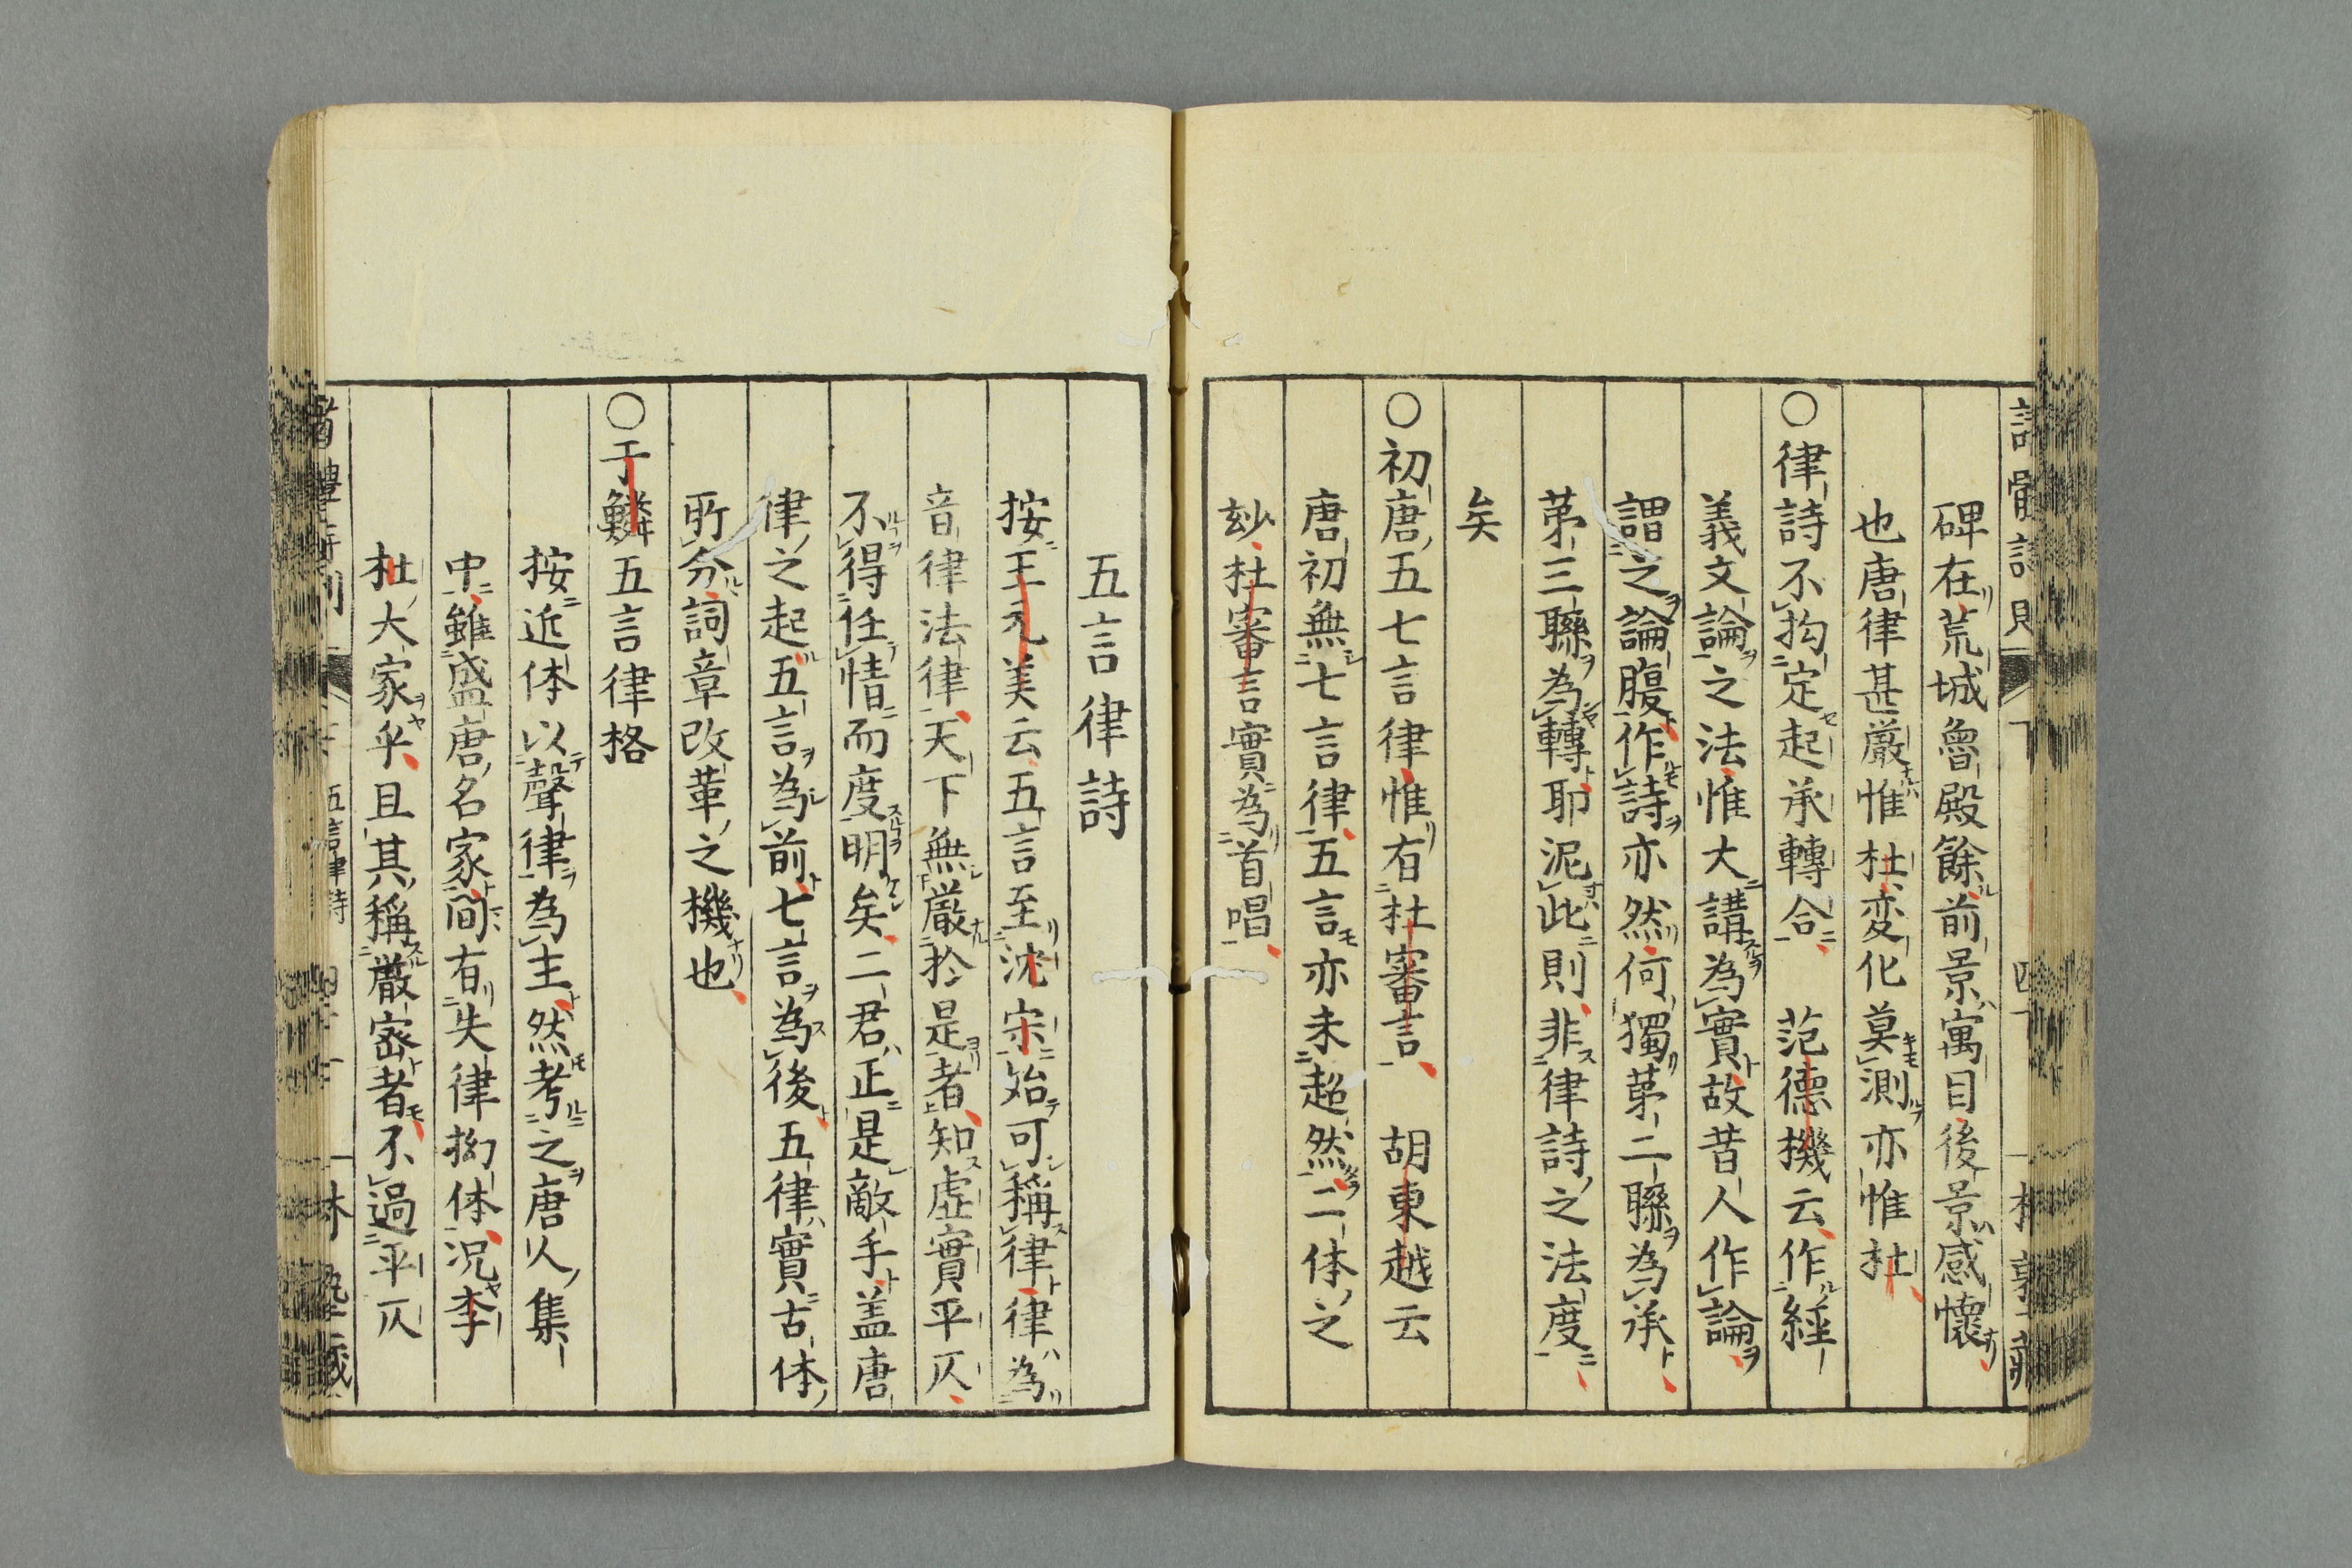 碑在荒城魯殿餘前景寓目後景感懷
也唐律甚嚴惟杜変化莫測亦惟杜
○律詩不拘定起承轉合　范德機云作經
義文論之法惟大講為實故昔人作論
謂之論腹作詩亦然何獨苐二聯為承
苐三聯為轉耶泥此則非律詩之法度
矣
○初唐五七言律惟有杜審言　胡東越云
唐初無七言律五言亦未超然二体之
玅杜審言實為首唱
五言律詩
按王元美云五言至沈宋始可稱律律為
音律法律天下無嚴於是者知虛實平仄
不得任情而度明矣二君正是敵手盖唐
律之起五言為前七言為後五律實古体
所分詞章改革之機也
○于鱗五言律格
按近体以聲律為主然考之唐人集
中雖盛唐名家間有失律拗体況李
杜大家乎且其稱嚴密者不過平仄
五言律詩